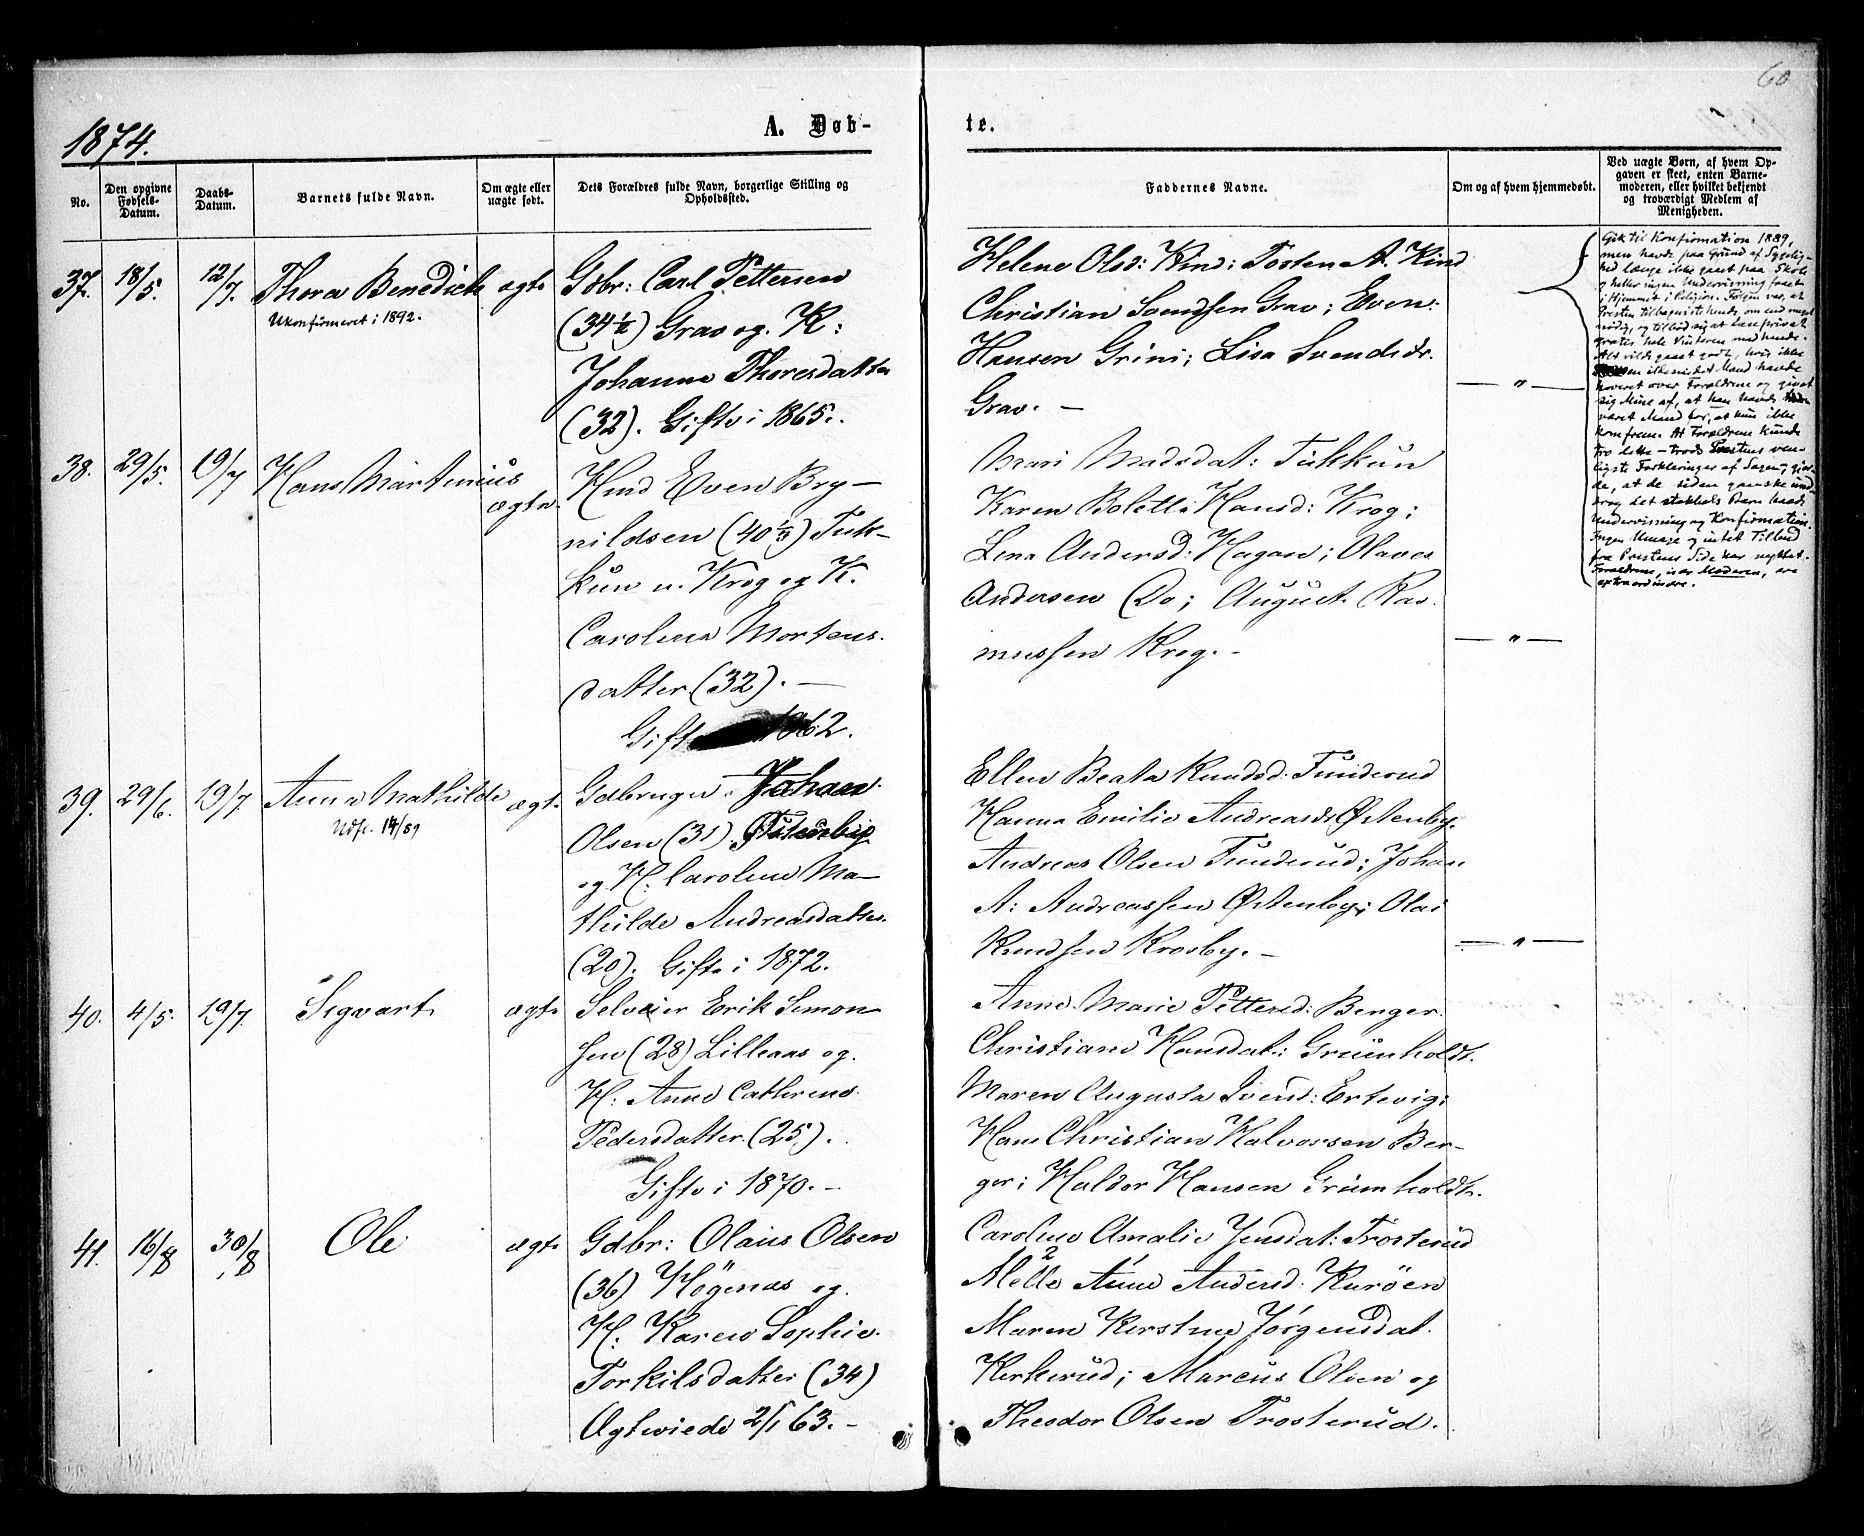 60
1874.
A. Døb-
te.
No.
Den opgivne Fødsels-Datum.
Daabs-Datum.
Barnets fulde Navn.
Om ægte eller uægte født.
Dets Forældres fulde Navn, borgerlige Stilling og Opholdssted.
Faddernes Navne.
Om og af hvem hjemmedøbt.
Ved uægte Børn, af hvem Op-
gaven er skeet, enten Barne-
moderen, eller hvilket bekjendt
og troværdigt Medlem af
Menigheden.
37. 18/5. 12/7. Thora Benedicte ægte Gdbr: Carl Pettersen
Ukonfirmeret i 1892.
(34½) Grav og K:
Johanne Thoresdatter
(32). Gifte i 1865.
Helene Olsd: Kind; Tosten A. Kind
Christian Svendsen Grav; Even
Hansen Grini; Lisa Svendsdr.
Grav. —
— " —
Gik til Konfirmation 1889,
men havde paa Grund af Sygelig-
hed længe ikke gaaet paa Skole
og heller ingen Undervisning faaet
i Hjemmet i Religion. Følgen var, at
Presten tilbageviste hende, om end meget
nødig, og tilbød sig at læse privat
gratis hele Vinteren med hende.
Alt vilde gaaet godt, hvis ikke
en ilde Mand havde
hoveret over Forældrene og givet
sig Mine af, at han havde
været Mand for, at hun ikke
kom frem. At Forældrene kunde
tro dette — trods Prestens ven-
ligste Forklaringer af Sagen, gjor-
de, at de siden ganske und-
drog det stakkels Barn baade
Undervisning og Konfirmation.
Ingen Umage og intet Tilbud
fra Prestens Side har nyttet.
Forældrene, især Moderen, ere
extraordinære.
38. 29/5. 19/7 Hans Martinius ægte Hmd Even Bry-
nildsen (40⅓) Tuk-
kun u. Krog og K.
Caroline Mortens-
datter (32). —
Gift 1862.
Mari Madsdat: Tukkun
Karen Bolette Hansd: Krog;
Lena Andersd: Hagane; Olaves
Andersen Do; August Ras-
mussen Krog. -
— " —
39. 29/6. 19/7 Anna Mathilde ægte Gdbruger Johan
Udfl. 14/89
Olsen (31) Østenby
og K. Caroline Ma-
thilde Andreasdatter
(20). Gifte i 1872.
Ellen Beata Knudsd: Funderud
Hanna Emilie Andreasdr Østenby.
Andreas Olsen Funderud; Johan
A: Andreassen Østenby; Olai
Knudsen Krosby. —
— " —
40. 4/5. 19/7. Sigvart ægte Selveier Erik Simon-
sen (28) Lilleaas og
K: Anne Cathrine
Pedersdatter (25).
Gifte i 1870. -
Anne Marie Pettersd: Berger
Christiane Hansdat: Grümholdt.
Maren Augusta Svend: Ertevig;
Hans Christian Halvorsen Ber-
ger; Haldor Hansen Grümholdt.
41. 16/8 30/8 Ole ægte Gdbr: Olaus Olsen
(36) Högenæs og
K. Karen Sophie
Torkilsdatter (34)
Ægteviede 2/1 63. -
Caroline Amalie Jensdat: Trosterud
2 1
Mette Anne Andersd: Kuröen
Maren Kirstine Jörgensdat.
Kirkerud; Marcus Olsen og
Theodor Olsen Trosterud.